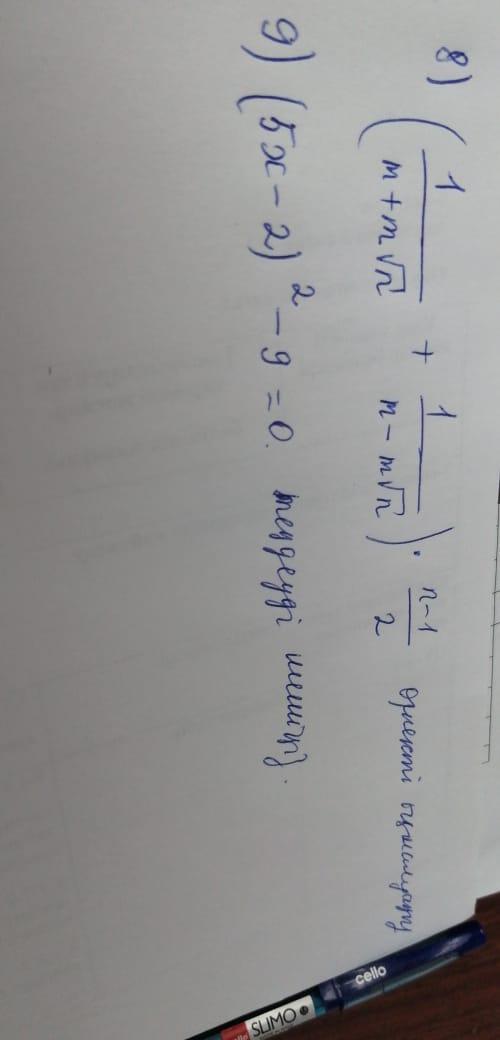 8) (1/(m+m√n) + 1/(m−m√n)) · (n−1)/2 өрнекті ықшамдау
9) (5x−2)² − 9 = 0. теңдеуді шешіңіз.
cello
SUMO